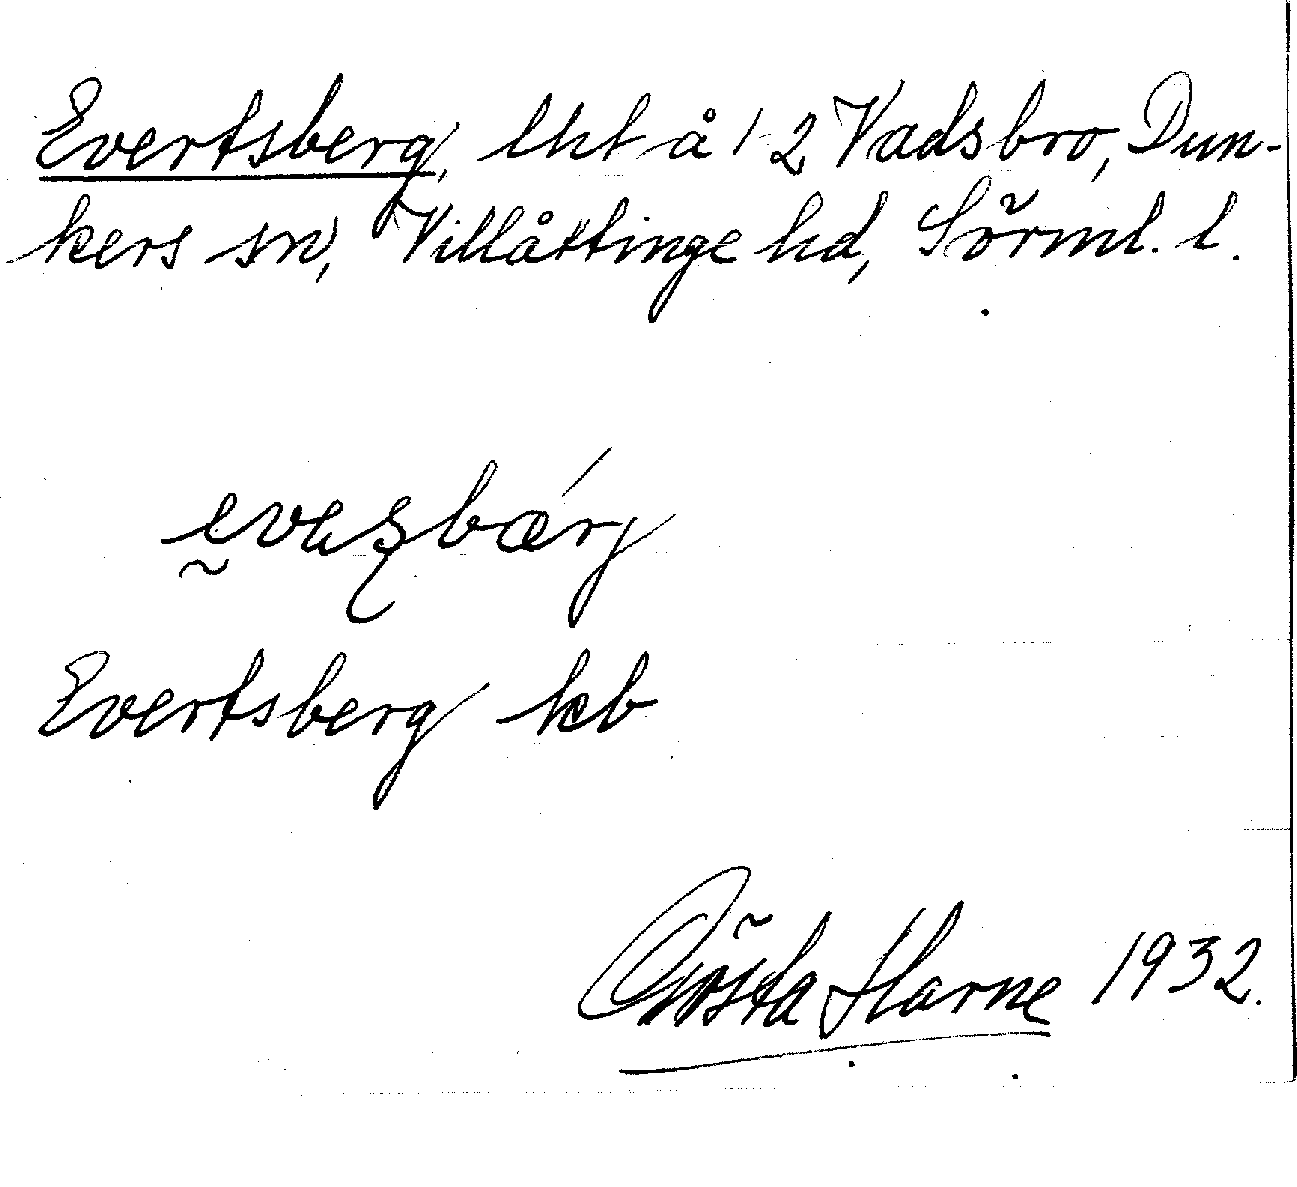 Evertsberg, lht å 1-2 Vadsbro, Dun-
kers sn, Villåttinge hd, Sörml. l.
Evertsberg kb
Gösta Harne 1932.